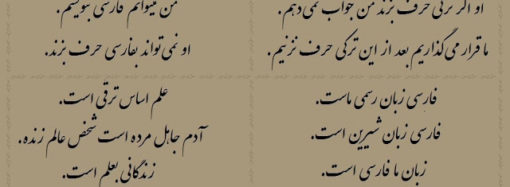 او اگر ترکی حرف بزند من جواب نمی‌دهم.
ما قرار می‌گذاریم بعد از این ترکی حرف نزنیم.
من میتوانم فارسی بنویسم.
او نمی‌تواند بفارسی حرف بزند.
فارسی زبان رسمی ماست.
فارسی زبان شیرین است.
زبان ما فارسی است.
علم اساس ترقی است.
آدم جاهل مرده است شخص عالم زنده.
زندگانی بعلم است.